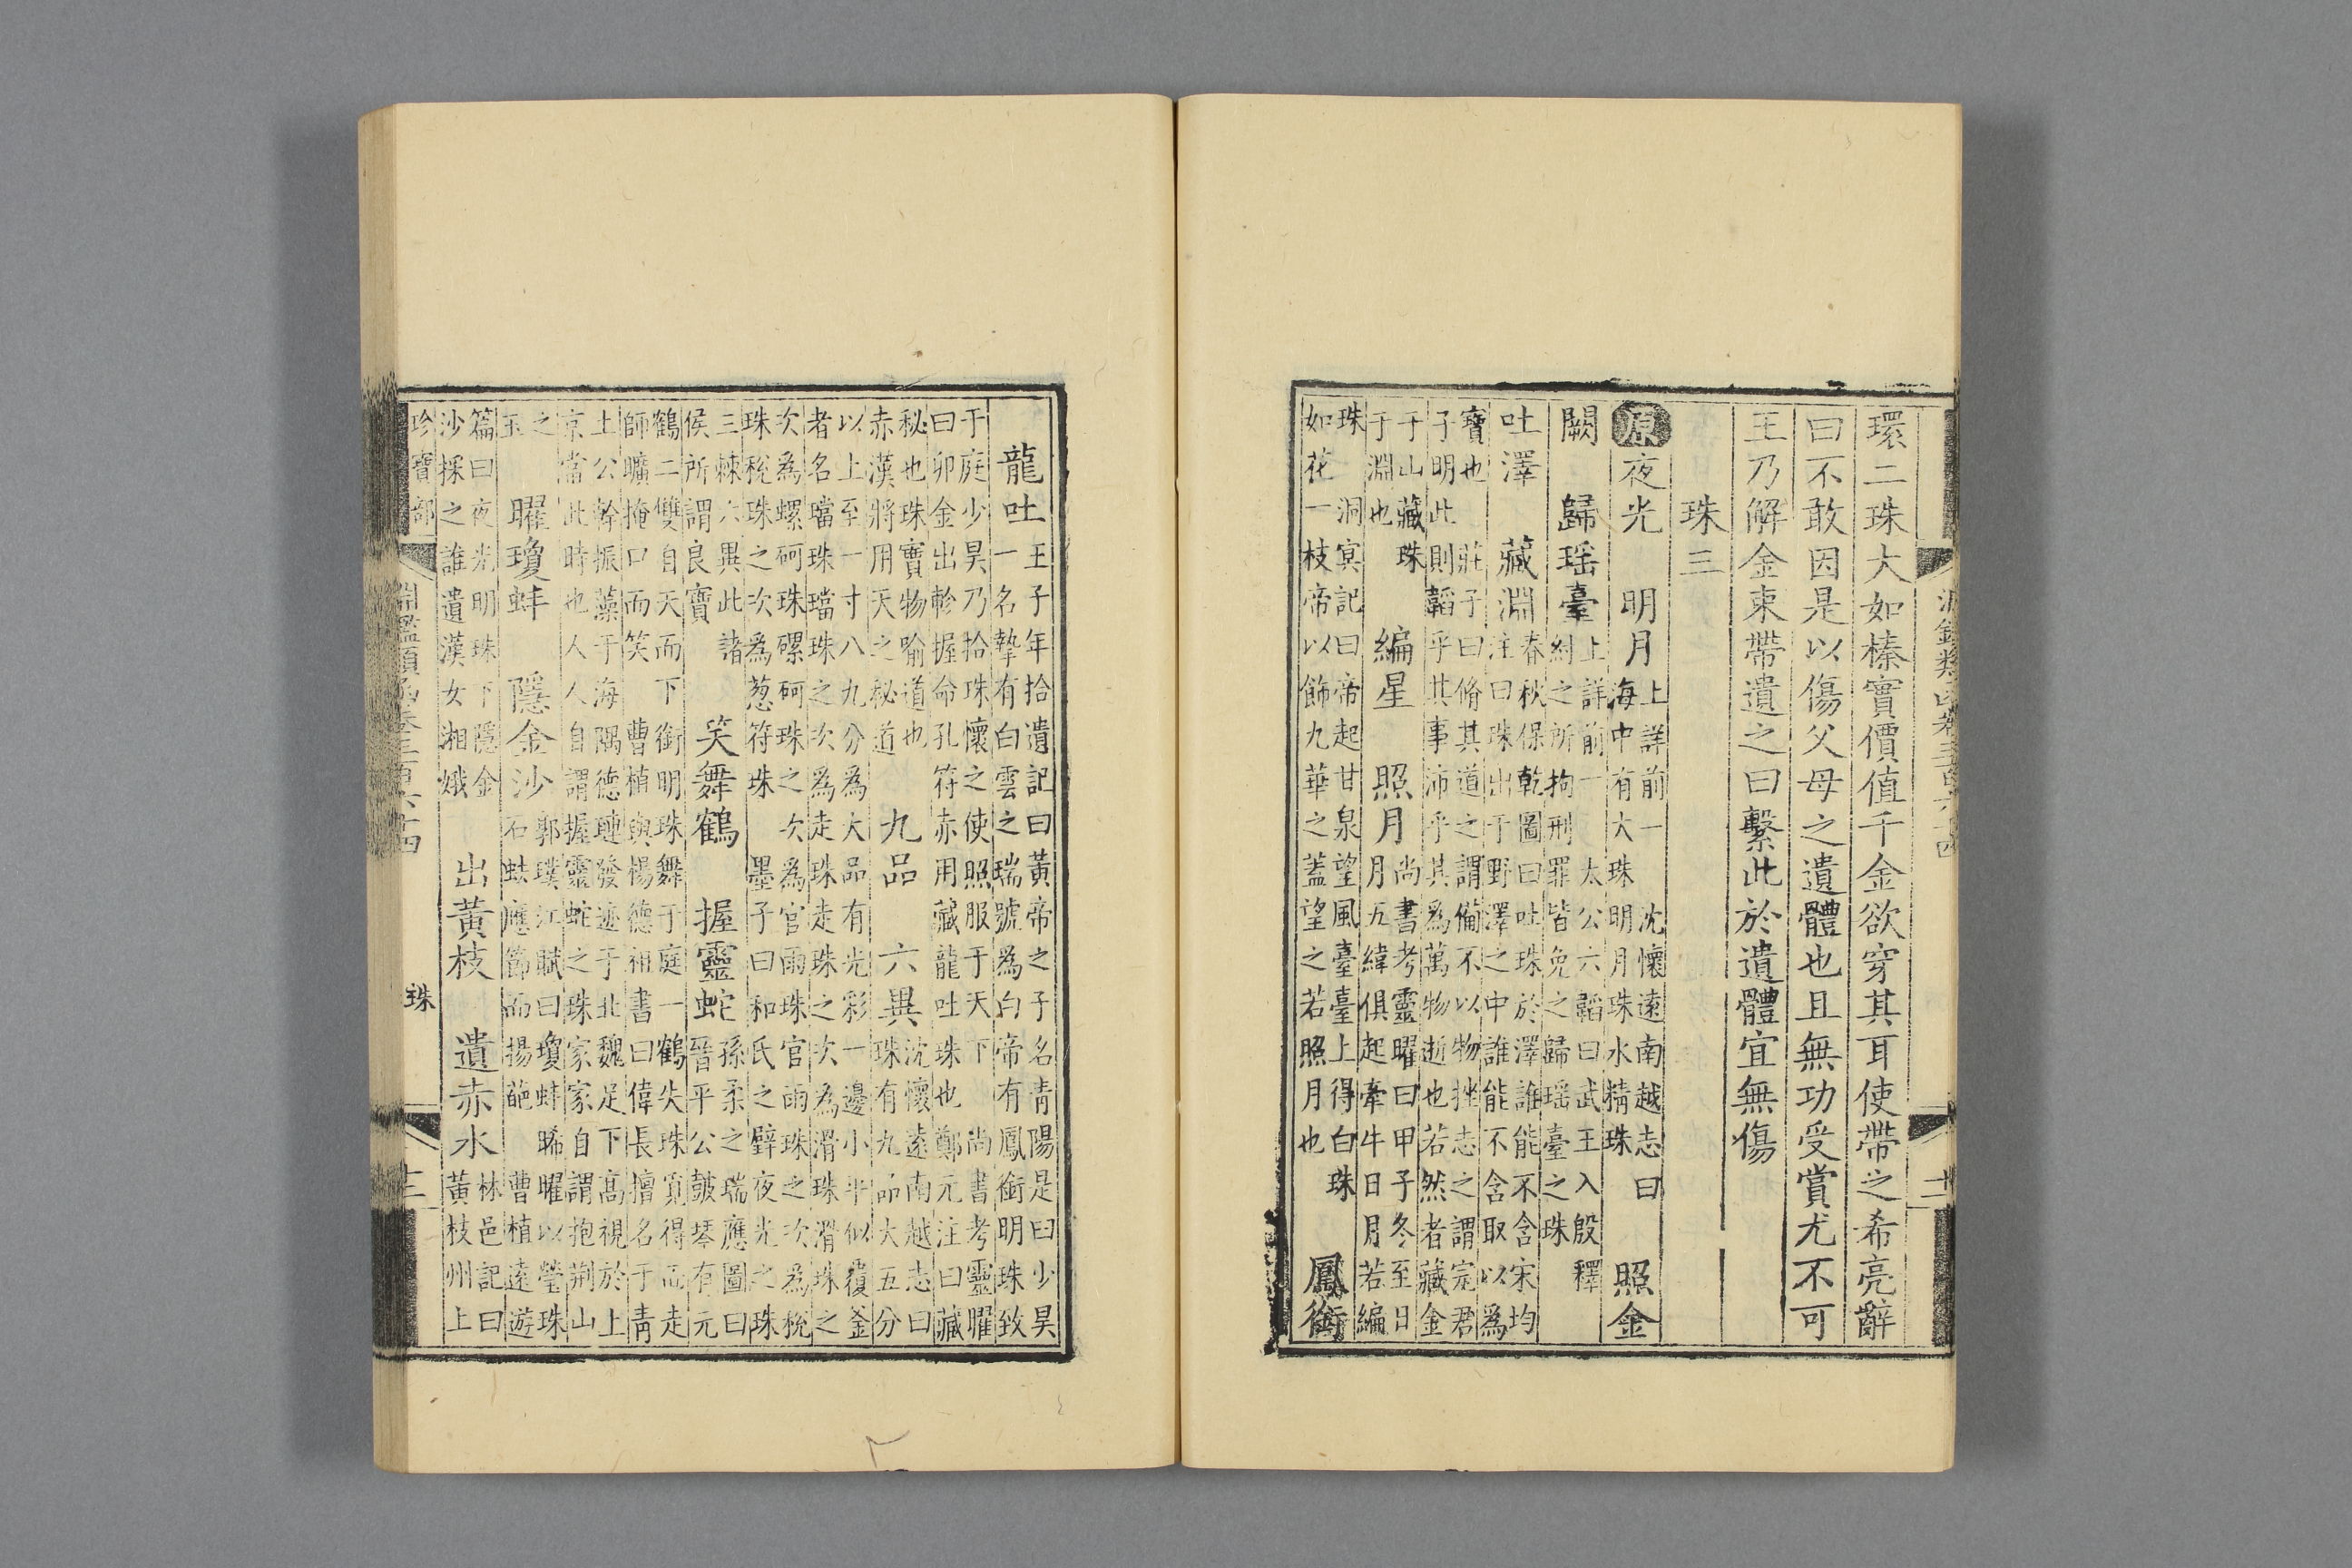 環二珠大如榛實價值千金欲穿其耳使帶之希亮辭
曰不敢因是以傷父母之遺體也且無功受賞尤不可
王乃解金束帶遺之曰繫此於遺體宜無傷
珠三
原夜光 明月
上詳前一 沈懷遠南越志曰
海中有大珠明月珠水精珠
照金
闕 歸瑤臺
上詳前一 太公六韜曰武王入殷 釋
紂之所拘刑罪皆免之歸瑤臺之珠
吐澤 藏淵
春秋保乾圖曰吐珠於澤誰能不含宋均
注曰珠出于野澤之中誰能不含取以爲
寶也 莊子曰脩其道之謂備不以物挫志之謂完君
子明此則韜乎其事沛乎其爲萬物逝也若然者藏金
于山藏珠
于淵也
編星 照月
尚書考靈曜曰甲子冬至日
月五緯俱起牽牛日月若編
珠 洞冥記曰帝起甘泉望風臺臺上得白珠
如花一枝帝以飾九華之蓋望之若照月也
鳳銜
龍吐
王子年拾遺記曰黃帝之子名青陽是曰少昊
一名摯有白雲之瑞號爲白帝有鳳銜明珠致
于庭少昊乃拾珠懷之使照服于天下 尚書考靈曜
曰卯金出軫握命孔符赤用藏龍吐珠也鄭元注曰藏
秘也珠寶物喻道也
赤漢將用天之秘道
九品 六異
沈懷遠南越志曰
珠有九品大五分
以上至一寸八九分爲大品有光彩一邊小平似覆釜
者名璫珠璫珠之次爲走珠走珠之次爲滑珠滑珠之
次爲螺砢珠磥砢珠之次爲官雨珠官雨珠之次爲稅
珠稅珠之次爲葱符珠 墨子曰和氏之璧夜光之珠
三棘六異此諸
侯所謂良寶
笑舞鶴 握靈蛇
孫柔之瑞應圖曰
晉平公鼓琴有元
鶴二雙自天而下銜明珠舞于庭一鶴失珠覓得而走
師曠掩口而笑 曹植與楊德祖書曰偉長擅名于青
土公幹振藻于海隅德璉發迹于北魏足下高視於上
京當此時也人人自謂握靈蛇之珠家家自謂抱荊山
之
玉
曜瓊蚌 隱金沙
郭璞江賦曰瓊蚌晞曜以瑩珠
石蚨應節而揚葩 曹植遠遊
篇曰夜光明珠下隱金
沙採之誰遺漢女湘娥
出黃枝 遺赤水
林邑記曰
黃枝州上
珍寶部 淵鑑類函卷三百六十四 珠